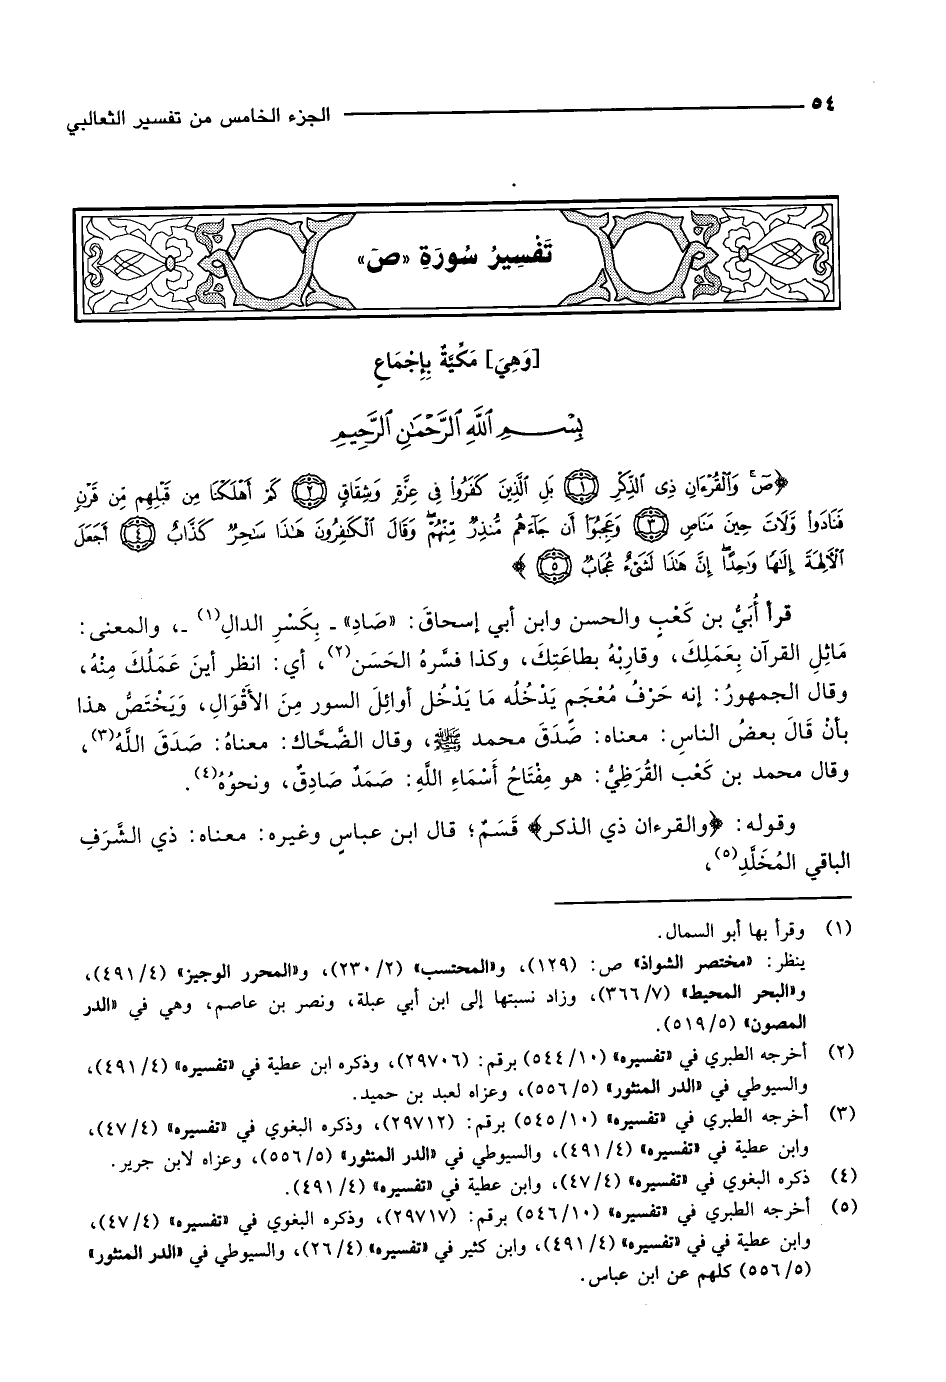 ٥٤ الجزء الخامس من تفسير الثعالبي
تَفْسِيرُ سُورَةِ «ص»
[وَهِيَ] مَكِّيَّةٌ بِإجْمَاعٍ
بِسْمِ ٱللَّهِ ٱلرَّحْمَٰنِ ٱلرَّحِيمِ
﴿صٓ ۚ وَٱلْقُرْءَانِ ذِى ٱلذِّكْرِ ﴿١﴾ بَلِ ٱلَّذِينَ كَفَرُوا۟ فِى عِزَّةٍ وَشِقَاقٍ ﴿٢﴾ كَمْ أَهْلَكْنَا مِن قَبْلِهِم مِّن قَرْنٍ
فَنَادَوا۟ وَّلَاتَ حِينَ مَنَاصٍ ﴿٣﴾ وَعَجِبُوٓا۟ أَن جَآءَهُم مُّنذِرٌ مِّنْهُمْ ۖ وَقَالَ ٱلْكَٰفِرُونَ هَٰذَا سَٰحِرٌ كَذَّابٌ ﴿٤﴾ أَجَعَلَ
ٱلْءَالِهَةَ إِلَٰهًا وَٰحِدًا ۖ إِنَّ هَٰذَا لَشَىْءٌ عُجَابٌ ﴿٥﴾ ﴾
قرأ أُبَيُّ بن كَعْبٍ والحسن وابن أبي إسحاقَ: «صَادِ» ـ بِكَسْرِ الدالِ(١) ـ، والمعنى:
مَاثِلِ القرآن بِعَمَلِكَ، وقارِبْهُ بطاعَتِكَ، وكذا فسَّرهُ الحَسَن(٢)، أي: انظر أينَ عَمَلُكَ مِنْهُ،
وقال الجمهورُ: إنه حَرْفُ مُعْجَمٍ يَدْخُلُه مَا يَدْخُل أوائِلَ السور مِنَ الأَقْوَالِ، وَيَخْتَصُّ هذا
بأنْ قَالَ بعضُ الناسِ: معناه: صَدَقَ محمد ﷺ، وقال الضَّحَّاك: معناهُ: صَدَقَ اللَّهُ(٣)،
وقال محمد بن كَعْب القُرَظِيُّ: هو مِفْتَاحُ أَسْمَاءِ اللَّهِ: صَمَدٌ صَادِقٌ، ونحوُهُ(٤).
وقوله: ﴿والقرءان ذي الذكر﴾ قَسَمٌ؛ قال ابن عباسٍ وغيره: معناه: ذي الشَّرَفِ
الباقي المُخَلَّدِ(٥)،
(١) وقرأ بها أبو السمال.
ينظر: «مختصر الشواذ» ص: (١٢٩)، و«المحتسب» (٢/ ٢٣٠)، و«المحرر الوجيز» (٤/ ٤٩١)،
و«البحر المحيط» (٧/ ٣٦٦)، وزاد نسبتها إلى ابن أبي عبلة، ونصر بن عاصم، وهي في «الدر
المصون» (٥/ ٥١٩).
(٢) أخرجه الطبري في «تفسيره» (١٠/ ٥٤٤) برقم: (٢٩٧٠٦)، وذكره ابن عطية في «تفسيره» (٤/ ٤٩١)،
والسيوطي في «الدر المنثور» (٥/ ٥٥٦)، وعزاه لعبد بن حميد.
(٣) أخرجه الطبري في «تفسيره» (١٠/ ٥٤٥) برقم: (٢٩٧١٢)، وذكره البغوي في «تفسيره» (٤/ ٤٧)،
وابن عطية في «تفسيره» (٤/ ٤٩١)، والسيوطي في «الدر المنثور» (٥/ ٥٥٦)، وعزاه لابن جرير.
(٤) ذكره البغوي في «تفسيره» (٤/ ٤٧)، وابن عطية في «تفسيره» (٤/ ٤٩١).
(٥) أخرجه الطبري في «تفسيره» (١٠/ ٥٤٦) برقم: (٢٩٧١٧)، وذكره البغوي في «تفسيره» (٤/ ٤٧)،
وابن عطية في في «تفسيره» (٤/ ٤٩١)، وابن كثير في «تفسيره» (٤/ ٢٦)، والسيوطي في «الدر المنثور»
(٥/ ٥٥٦) كلهم عن ابن عباس.